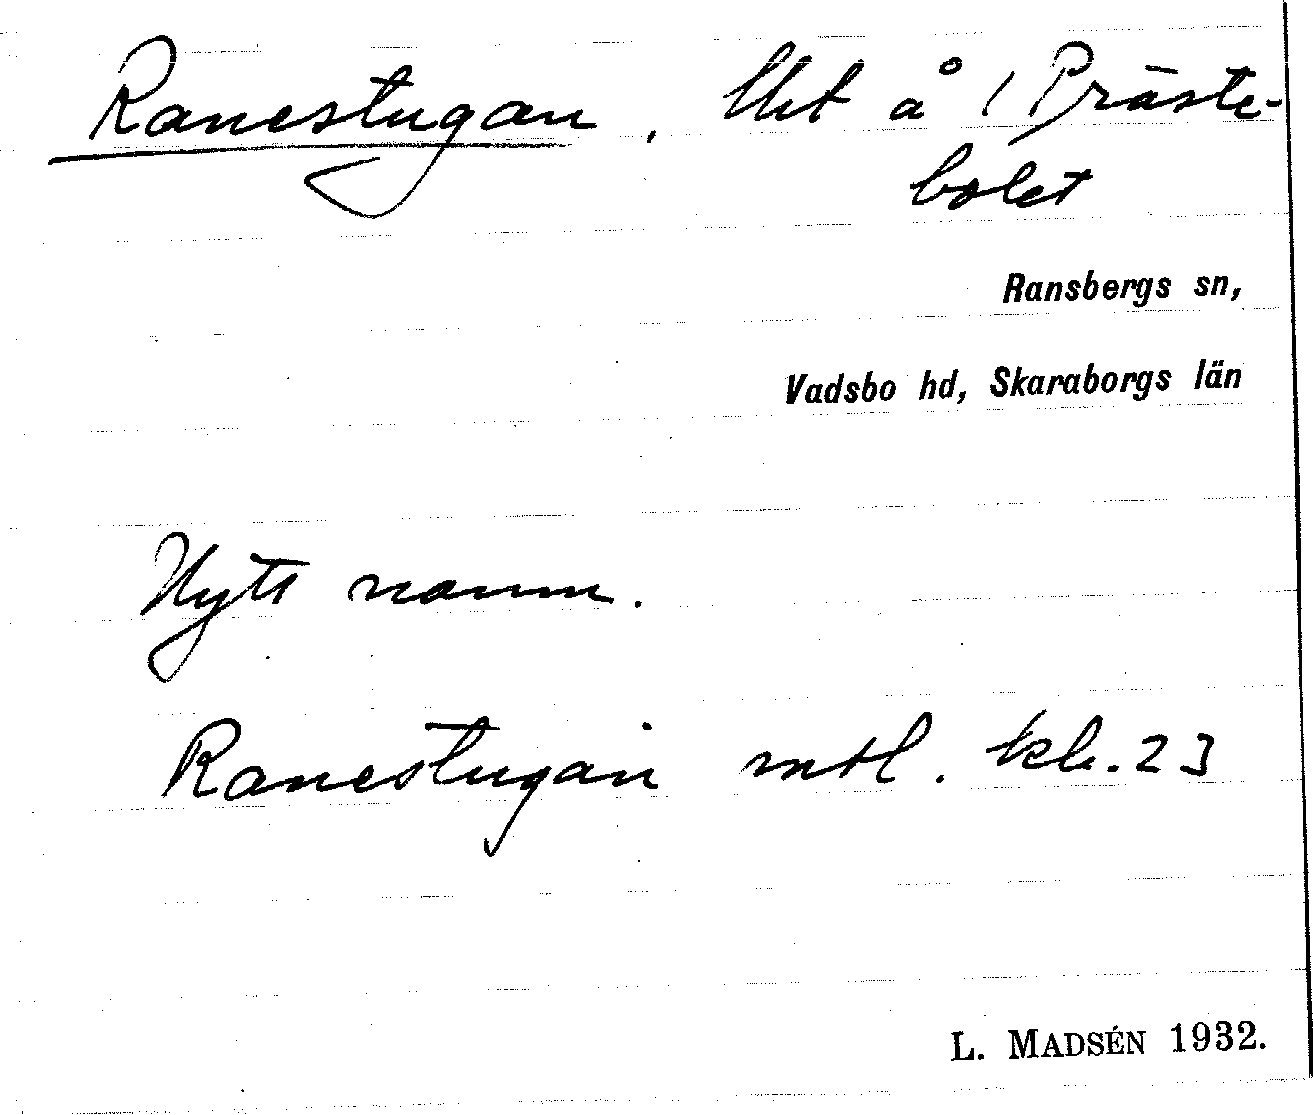 Ranestugan, lht å 1 Präste-
bolet
Ransbergs sn,
Vadsbo hd, Skaraborgs län
Nytt namn.
Ranestugan mtl. kb. 23
L. MADSÉN 1932.